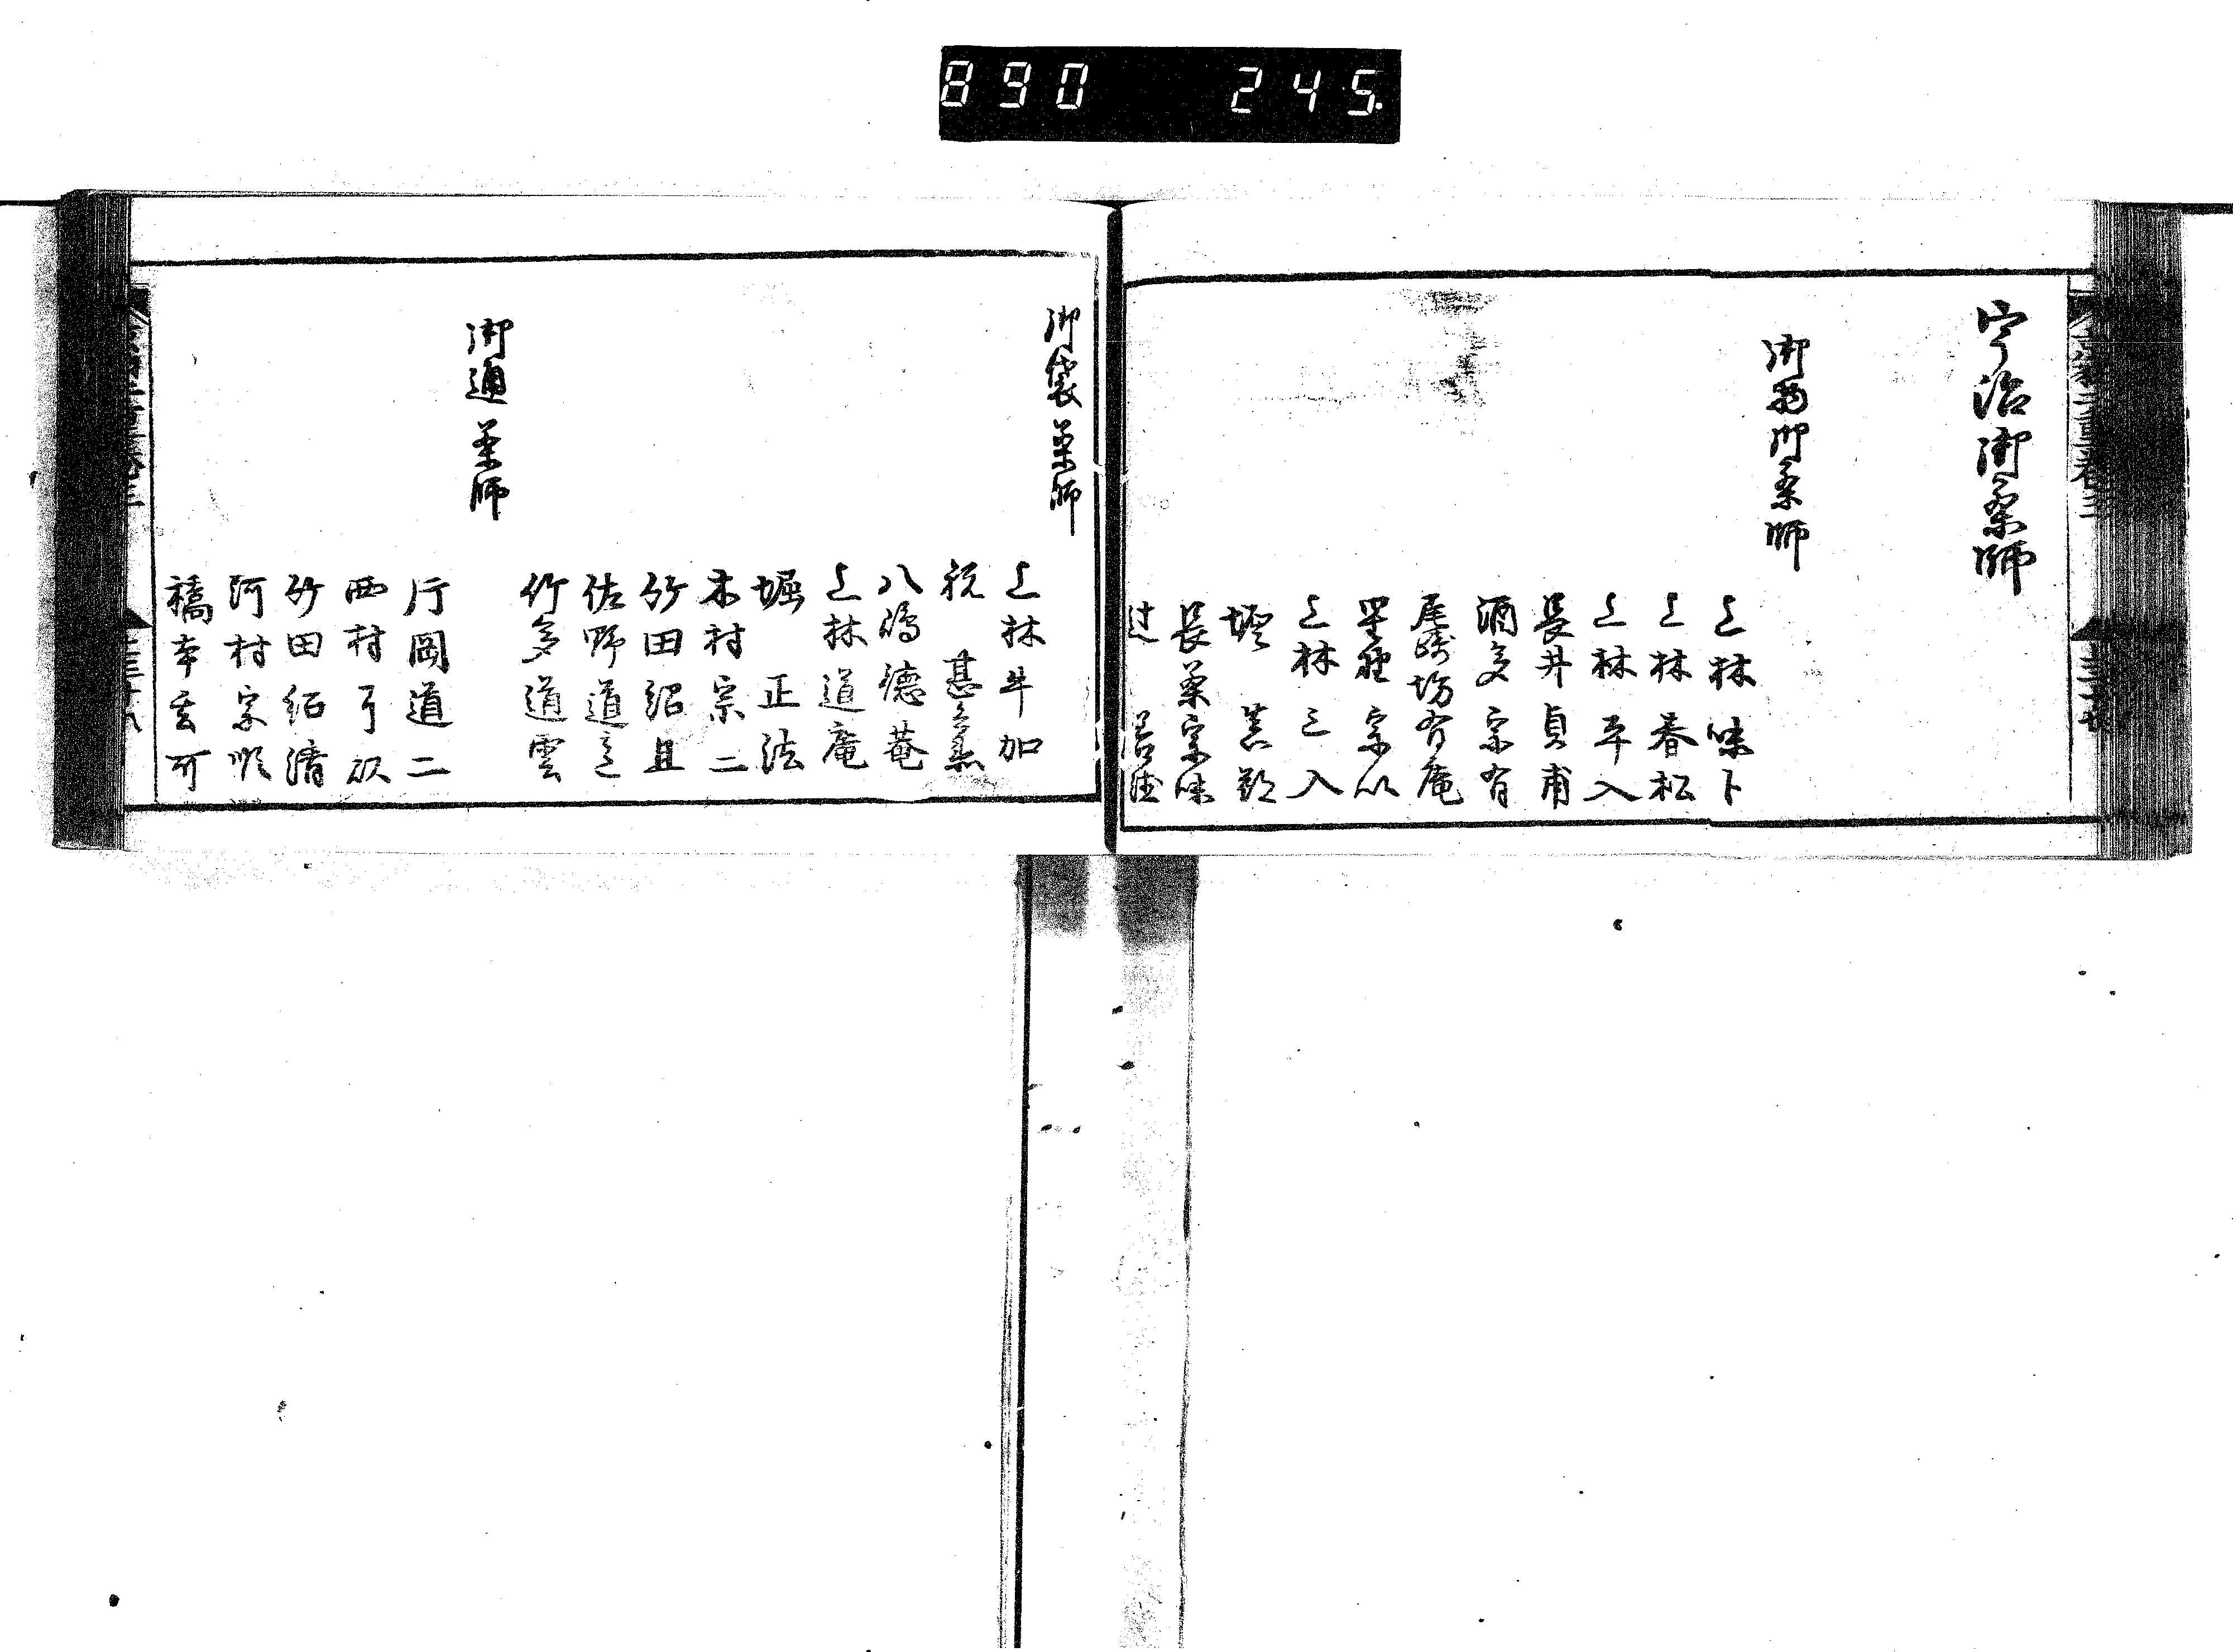 890 245.
宇治御茶師
御物御茶師
上林味卜
上林春松
上林平入
長井貞甫
酒多宗有
尾崎坊有庵
星野宗以
上林三入
堀真朔
長茶宗味
辻
御袋茶師
上林牛加
祝甚兵衛
八嶋徳菴
上林道庵
堀正法
木村宗二
竹田紹且
佐野道意
竹多道雲
御通茶師
片岡道二
西村了以
竹田紹清
河村宗順
橋本玄可